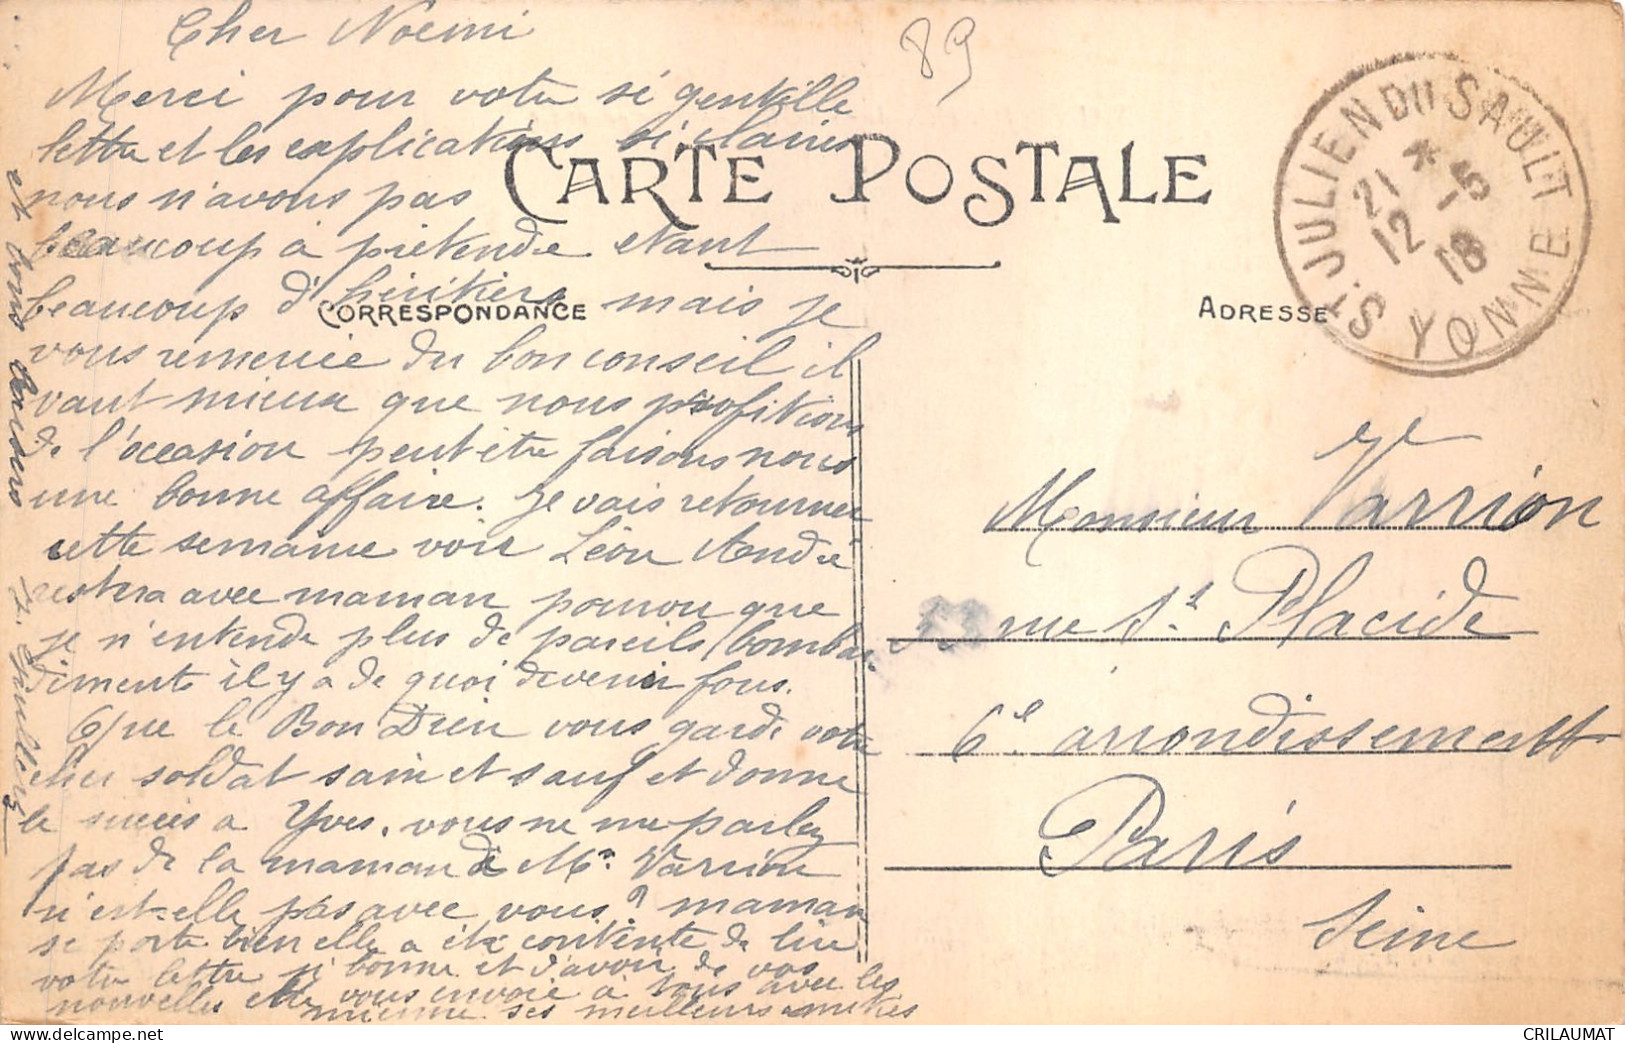 Cher Noemi
Merci pour votre si gentille
lettre et les explications si claires
nous n'avons pas
beaucoup à prétendre etant
beaucoup d'héritiers mais je
vous remercie du bon conseil il
vaut mieux que nous profitions
de l'occasion peut être faisons nous
une bonne affaire. Je vais retourner
cette semaine voir Léon André
restera avec maman pourvu que
je n'entende plus de pareils bombar
diments il y a de quoi devenir fous.
Que le Bon Dieu vous garde votre
cher soldat sain et sauf et donne
le succès a Yves. vous ne me parlez
pas de la maman de Mr Varrion
n'est-elle pas avec vous? maman
se porte bien elle a été contente de lire
votre lettre si bonne et d'avoir de vos
nouvelles elle vous envoie à tous avec les
mienne ses meilleurs amitiés
et bons baisers
89
CARTE POSTALE
CORRESPONDANCE
ADRESSE
ST JULIEN DU SAULT
* 21 -5
12 18
YONNE
Monsieur Varrion
33 rue St Placide
6e arrondissement
Paris
Seine
CRILAUMAT